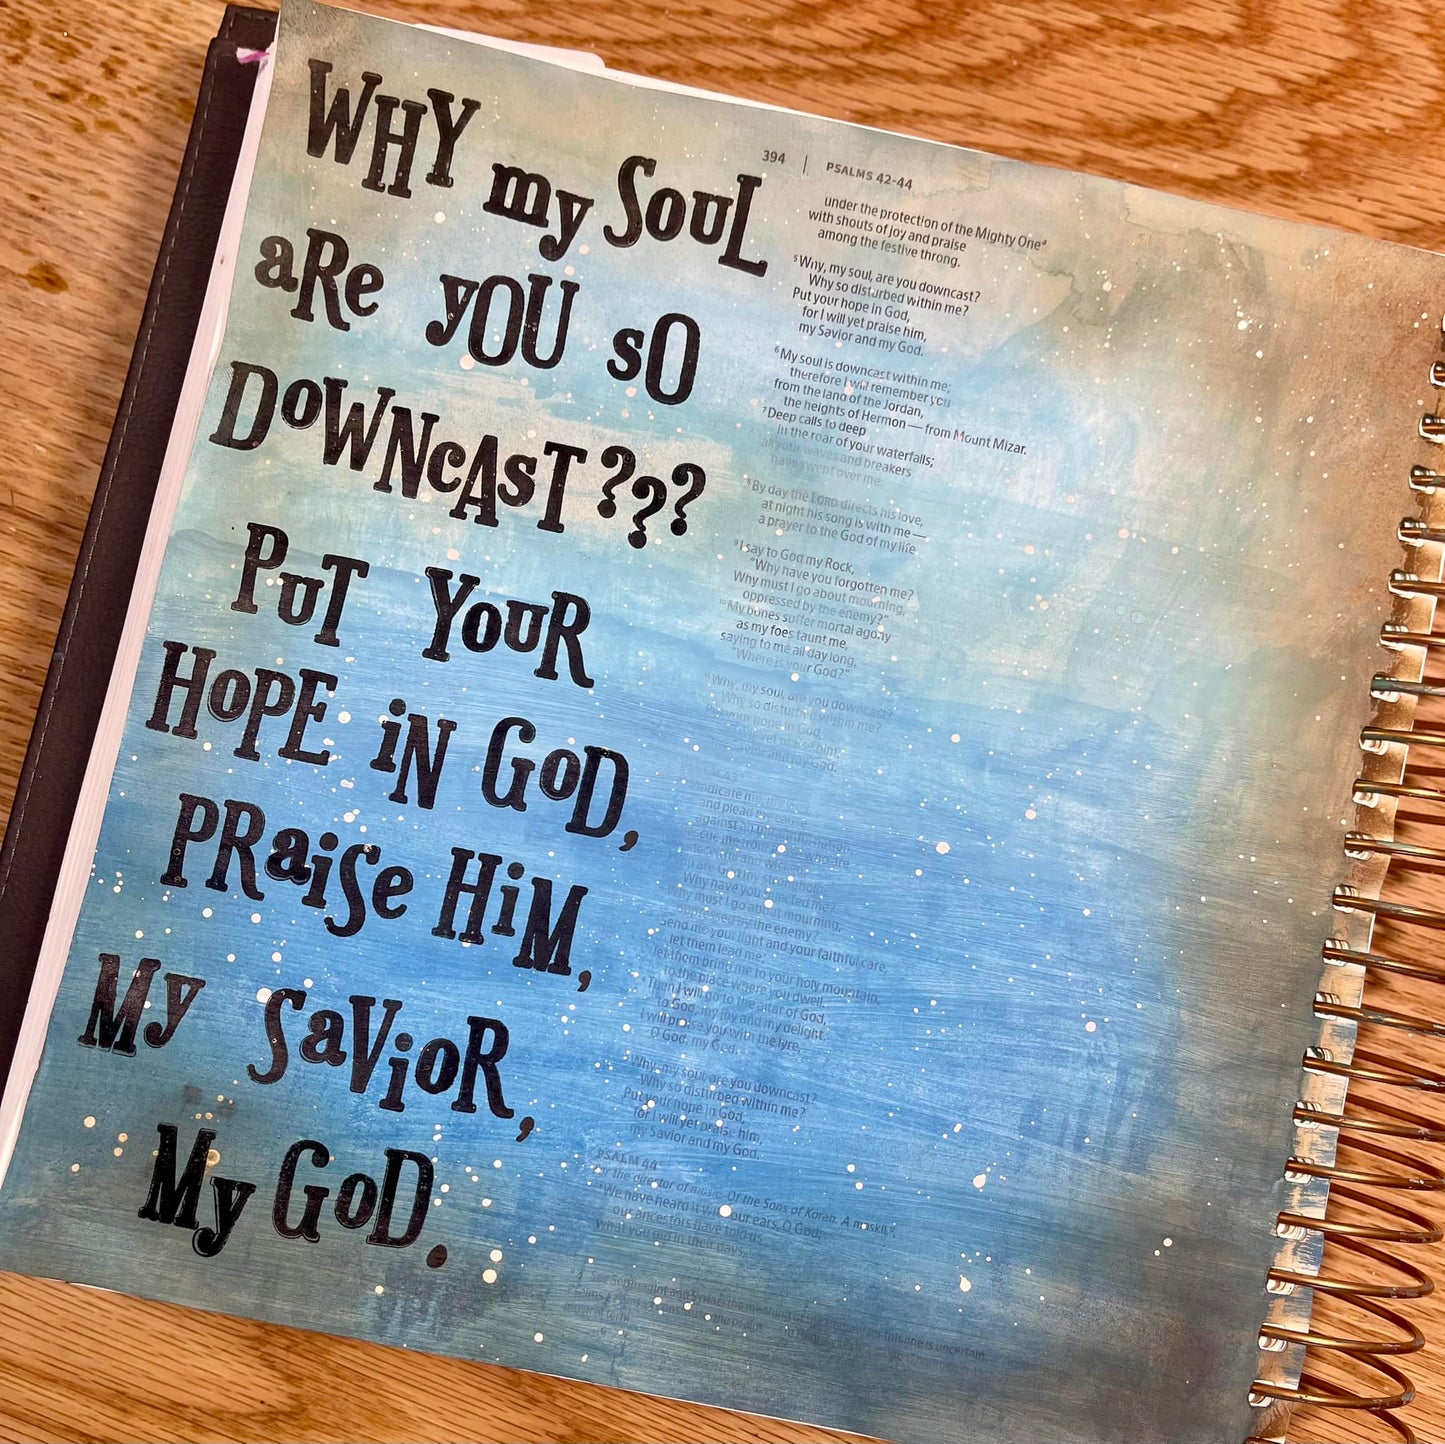 WHY my SOUL
aRe yOU sO
DoWNcAsT???
PuT YouR
HoPE iN GoD,
PRaiSe HiM,
My SaVioR,
My GoD.
394 | PSALMS 42-44
under the protection of the Mighty One
with shouts of joy and praise
among the festive throng.
5 Why, my soul, are you downcast?
Why so disturbed within me?
Put your hope in God,
for I will yet praise him,
my Savior and my God.
6 My soul is downcast within me;
therefore I will remember you
from the land of the Jordan,
the heights of Hermon — from Mount Mizar.
7 Deep calls to deep
in the roar of your waterfalls;
all your waves and breakers
have swept over me.
8 By day the LORD directs his love,
at night his song is with me —
a prayer to the God of my life.
9 I say to God my Rock,
"Why have you forgotten me?
Why must I go about mourning,
oppressed by the enemy?"
10 My bones suffer mortal agony
as my foes taunt me,
saying to me all day long,
"Where is your God?"
11 Why, my soul, are you downcast?
Why so disturbed within me?
Put your hope in God,
praise him,
and my God.
and plead my cause
against an
Why have you
Why must I go about mourning,
oppressed by the enemy?
Send me your light and your faithful care,
let them lead me;
let them bring me to your holy mountain,
to the place where you dwell.
Then I will go to the altar of God,
to God, my joy and my delight.
I will praise you with the lyre,
O God, my God.
Why, my soul, are you downcast?
Why so disturbed within me?
Put your hope in God,
for I will yet praise him,
my Savior and my God.
PSALM 44
For the director of music. Of the Sons of Korah. A maskil.
We have heard it with our ears, O God;
our ancestors have told us
what you did in their days,
the meaning of this line is uncertain.